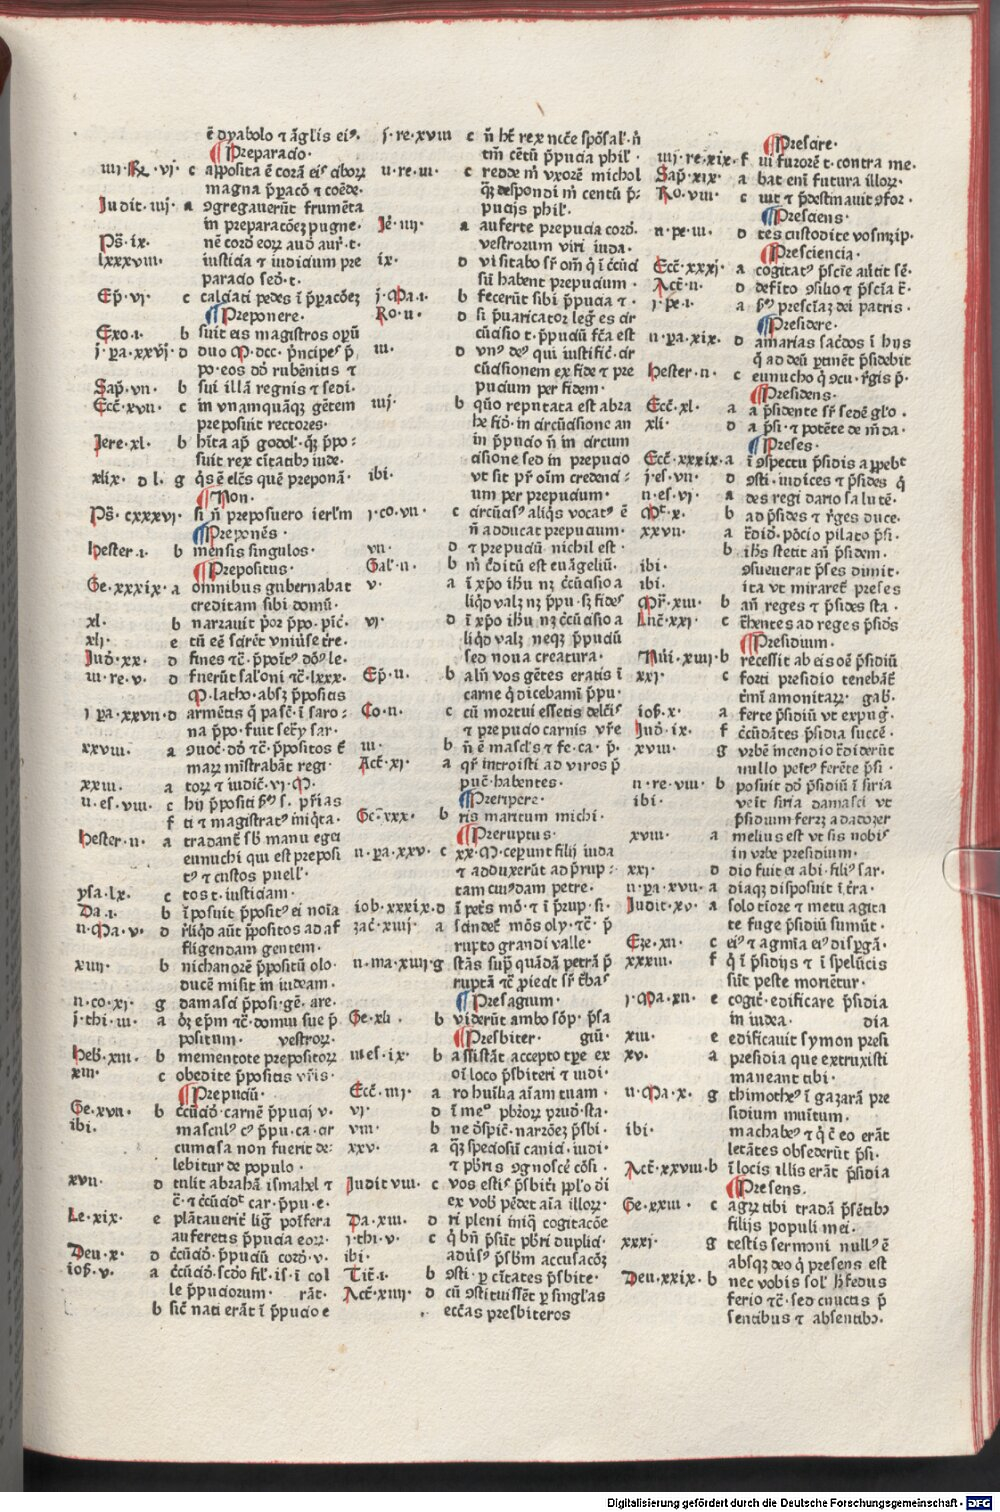 ē dyabolo ⁊ āg̃lis ei⁹.
¶ Preparacio.
iiii. R̃. vi. c apposita ē corā eis cibor̃
magna p̄p̄acō ⁊ coēde.
Judit. iiij. a ꝯgregauerūt frumēta
in preparacōeꝫ pugne.
Ps̄. ix. nē cord̄ eor̃ aud̄ aur̃. t.
lxxxviii. iusticia ⁊ iudicium pre
paracio sed̄. t.
Ep̄. vi. c calciati pedes ī p̄p̄acōeꝫ
¶ Preponere.
Exo. i. b
j. pa. xxvij. d duo M. dcc. p̄ncipes p̄
po. eos dō rubēnitis ⁊
Sap̄. vii. b sui illā regnis ⁊ sedi.
Ecc̄. xvii. c in vnamquāqꝫ gētem
preposuit rectores.
Jere. xl. b
suit rex ciītatibꝫ iude.
xlix. d l. g q̄s ē elc̄s quē preponā.
¶ Non.
Ps̄. cxxxvi. si n̄ preposuero ierl̄m
¶ Preponēs.
hester. i. b mensis singulos.
¶ Prepositus.
Ge. xxxix. a omnibus gubernabat
creditam sibi domū.
xl. b narrauit p̄or p̄po. pic̄.
xlj. e
Jud̄. xx. d
iii. re. v. d fuerūt sal̄oni ⁊c̄. lxxx.
M. latho. absꝫ p̄positis
i pa. xxvii. d armētis q̄ pasc̄. ī saro=
na p̄po. fuit
xxviii. a
mar̃ mīstrabāt regi.
xxiii. a tor̃ ⁊ iudic̄. vi. M.
ii. es. viii. c hij p̄positi
f ti ⁊ magistrat⁹
hester. ii. a tradant̄ sb̄ manu egei
eunuchi qui est preposi
t⁹ ⁊ custos puell̄.
ysa. lx. c tos t. iusticiam.
Da. i. b īposuit p̄posit⁹ ei noīa
ii. Ma. v. d r̄liq̄d aūt p̄positos ad af
fligendam gentem.
xiiii. b nichanorē p̄positū olo.
ducē misit in iudeam.
ii. co. xi. g damasci p̄posi. gē. are.
j. thi. iii. a
positum. vestror̃.
Heb̄. xiii. b mementote prepositor̃
xiii. c obedite p̄positis vr̄is.
¶ Prepuciū.
Ge. xvii. b c̄cūcid̄. carnē p̄pucij v.
ibi. mascul⁹ c⁹ p̄pu. ca. cir
cumcisa non fuerit de=
lebitur de populo.
xvii. d tulit abrahā ismahel ⁊
c̄. ⁊ c̄cūcid̄t car. p̄pu. e.
Le. xix. e plātauerit̄ liḡ pomifera
auferetis p̄pucia eor̃.
Deu. x. d c̄cūcid̄. p̄puciū cord̄. v.
ios̄. v. a c̄cūcid̄. scd̄o fil̄. is. ī col
le p̄puciorum. rāt.
b sic̄ nati erāt ī p̄pucio e
j. re. xviii c n̄ hē rex nccē spōsal̄. n̄
tm̄ cētū p̄pucia phil̄.
ii. re. iii. c redde m̄ vxorē michol
q̄ꝫ despondi m̄ centū p̄=
pucijs phil̄.
Je. iiij. a auferte prepucia cord̄.
vestrorum viri iuda.
ix. d visitabo sr̄ om̄ q̄ ī c̄cūci
siū habent prepucium.
j. Ma. i. b fecerūt sibi p̄pucia ⁊.
Ro. ii. d si p̄uaricator leg̃ es cir
cūcisio t. p̄puciū fc̄a est
iii. d vn⁹ de⁹ qui iustific̄. cir
cūcisionem ex fide ⁊ pre
pucium per fidem.
iiij. b quō reputata est abra
he fid̄. in circūcisione an
in p̄pucio n̄ in circum
cisione sed in prepucio
ibi. vt sit pr̄ oīm credenci=
um per prepucium.
j. co. vii. c circūcis⁹ aliq̄s vocat⁹ ē
n̄ adducat prepucium.
vii. d ⁊ prepuciū nichil est.
Gal̄. ii. b m̄ c̄ditū est euāgeliū.
v. a ī xp̄o ihū nꝫ c̄cūcisio a
liq̄d valꝫ nꝫ p̄pu. sꝫ fides
vj. d ī xp̄o ihū nꝫ c̄cūcisio a
liq̄d valꝫ neqꝫ p̄puciū
sed noua creatura.
Ep̄. ii. b alīi vos gētes eratis ī
carne q̄ dicebamī p̄pu.
Co. ii. c cū mortui essetis delc̄is
⁊ prepucio carnis vr̄e
iii. b n̄ ē mascl̄s ⁊ fe. ca. p̄.
Act̄. xi. a qr̄ introisti ad viros p̄
puc̄. habentes.
¶ Preripere.
Ge. xxx. b ris maritum michi.
¶ Preruptus.
ii. pa. xxv. c xx. M. ceperunt filij iuda
⁊ adduxerūt ad p̄rup=
tam cuiusdam petre.
iob. xxxix. d ī petr̄s mō. ⁊ ī p̄rup. si.
zac̄. xiiij. a scindet̄ mōs oly. ⁊c̄. p̄
rupto grandi valle.
ii. ma. xiiij g stās sup̄ quādā petrā p̄
¶ Presagium.
Ge. xli. b viderūt ambo sōp̄. p̄sa
¶ Presbiter. giū.
iii es. ix. b assistāt accepto tp̄e ex
oī loco p̄sbiteri ⁊ iudi.
Ecc̄. iiij. a ro humilia aīam tuam.
vj. d ī me⁹ pb̄ror̃ prud̄. sta.
viii. b ne d̄spic̄. narrōeꝫ p̄sbi.
xxv. a q̄ꝫ speciosū canici. iudi.
⁊ pb̄ris ꝯgnoscē cōsi.
Judit viii. c vos estis p̄sbit̄i pp̄lo di
ex vob̄ pēdet aīa illor̃.
Da. xiii. d ri pleni iniq̄ cogitacōe
j. thi. v. c q̄ bn̄ p̄sūt pb̄ri duplici.
ibi. adūs⁹ p̄sb̄m accusacōꝫ
Tit̄. i. b ꝯsti. p̄ ciītates p̄sbite.
Act̄. xiiij. d cū ꝯstituissēt p̄ singl̄as
ecc̄as presbiteros
¶ Prescire.
iiij re. xix. f ui furorē t. contra me.
Sap̄. xix. a bat enī futura illor̃.
Ro. viii. c uit ⁊ p̄destinauit ꝯfor.
¶ Presciens.
ii. pe. iii. d tes custodite vosmꝫip.
¶ Presciencia.
Ecc̄. xxxj. a cogitat⁹ p̄scīe
Act̄. ii. a defīto ꝯsilio ⁊ p̄scīa
j. pe. i. a presciaꝫ dei patris.
¶ Presidere.
ii. pa. xix. d amarias sac̄dos ī hijs
q̄ ad deū p̄tinēt p̄sidebit
hester. ii. c eunucho q̄ r̄gis p̄.
¶ Presidens.
Ecc̄. xl. a a p̄sidente sr̄ sedē gl̄o.
xli. d a p̄si. ⁊ potēte de m̄da.
¶ Preses.
Ecc̄. xxxix. a ī ꝯspectu p̄sidis appeb̄t
j. es. vii. d ꝯsti. iudices ⁊ p̄sides q̄
ii. es. vj. a des regi dario salutē.
Mt̄. x. b ad p̄sides ⁊ r̄ges duce.
xxvii. a t̄did̄. pōcio pilato p̄si.
b ih̄s stetit an̄ p̄sidem.
ibi. ꝯsueuerat p̄ses dimit.
ibi. ita vt miraret̄ preses
Mr̄. xiii. b an̄ reges ⁊ p̄sides sta.
Luc̄. xxi. c t̄hentes ad reges p̄sid̄s
¶ Presidium.
Nūi. xiiij. b recessit ab eis oē p̄sidiū
xxj. c forti presidio tenebāt̄
t̄mī amonitar̃. gab̄.
ios̄. x. a ferte p̄sidiū vt expug̃.
Jud̄. ix. f c̄cūdātes p̄sidia succē.
xviii. g vrbē incendio t̄diderūt
nullo penit⁹ ferēte p̄si.
ii. re. viii. b posuit dd̄ p̄sidiū ī siria
ibi. veīt siria damasci vt
p̄sidium ferꝫ adadoꝫer
xviii. a melius est vt sis nobis
in vrbe presidium.
xxj. d dio fuit ei abi. fili⁹ sar.
ii. pa. xvii. a diaqꝫ disposuit ī t̄ra.
Judit. xv. a solo tiore ⁊ metu agita
te fuge p̄sidiū sumūt.
Eze. xii. c ei⁹ ⁊ agmīa ei⁹ disp̄gā.
xxxiii. f q̄ ī p̄sidijs ⁊ ī spelūcis
sūt peste moriētur.
j. Ma. xii. e cogit̄. edificare p̄sidia
in iudea. dia
xiii. e edificauit symon presi
xv. a presidia que extruxisti
maneant tibi.
ii. Ma. x. g thimothe⁹ ī gazarā pre
sidium muītum.
ibi. machabe⁹ ⁊ q̄ c̄ eo erāt
letātes obsederūt p̄si.
Act̄. xxviii. b ī locis illis erāt p̄sidia
¶ Presens.
Ge. xxiii. c agr̃ tibi tradā p̄sētibꝫ
filijs populi mei.
xxxj. g testis sermoni null⁹ ē
absqꝫ deo q̄ presens est
Deu. xxix. b nec vobis sol̄ h̄ fedus
ferio ⁊c̄. sed cūctis p̄
sentibus ⁊ absentibꝫ.
Digitalisierung gefördert durch die Deutsche Forschungsgemeinschaft - DFG